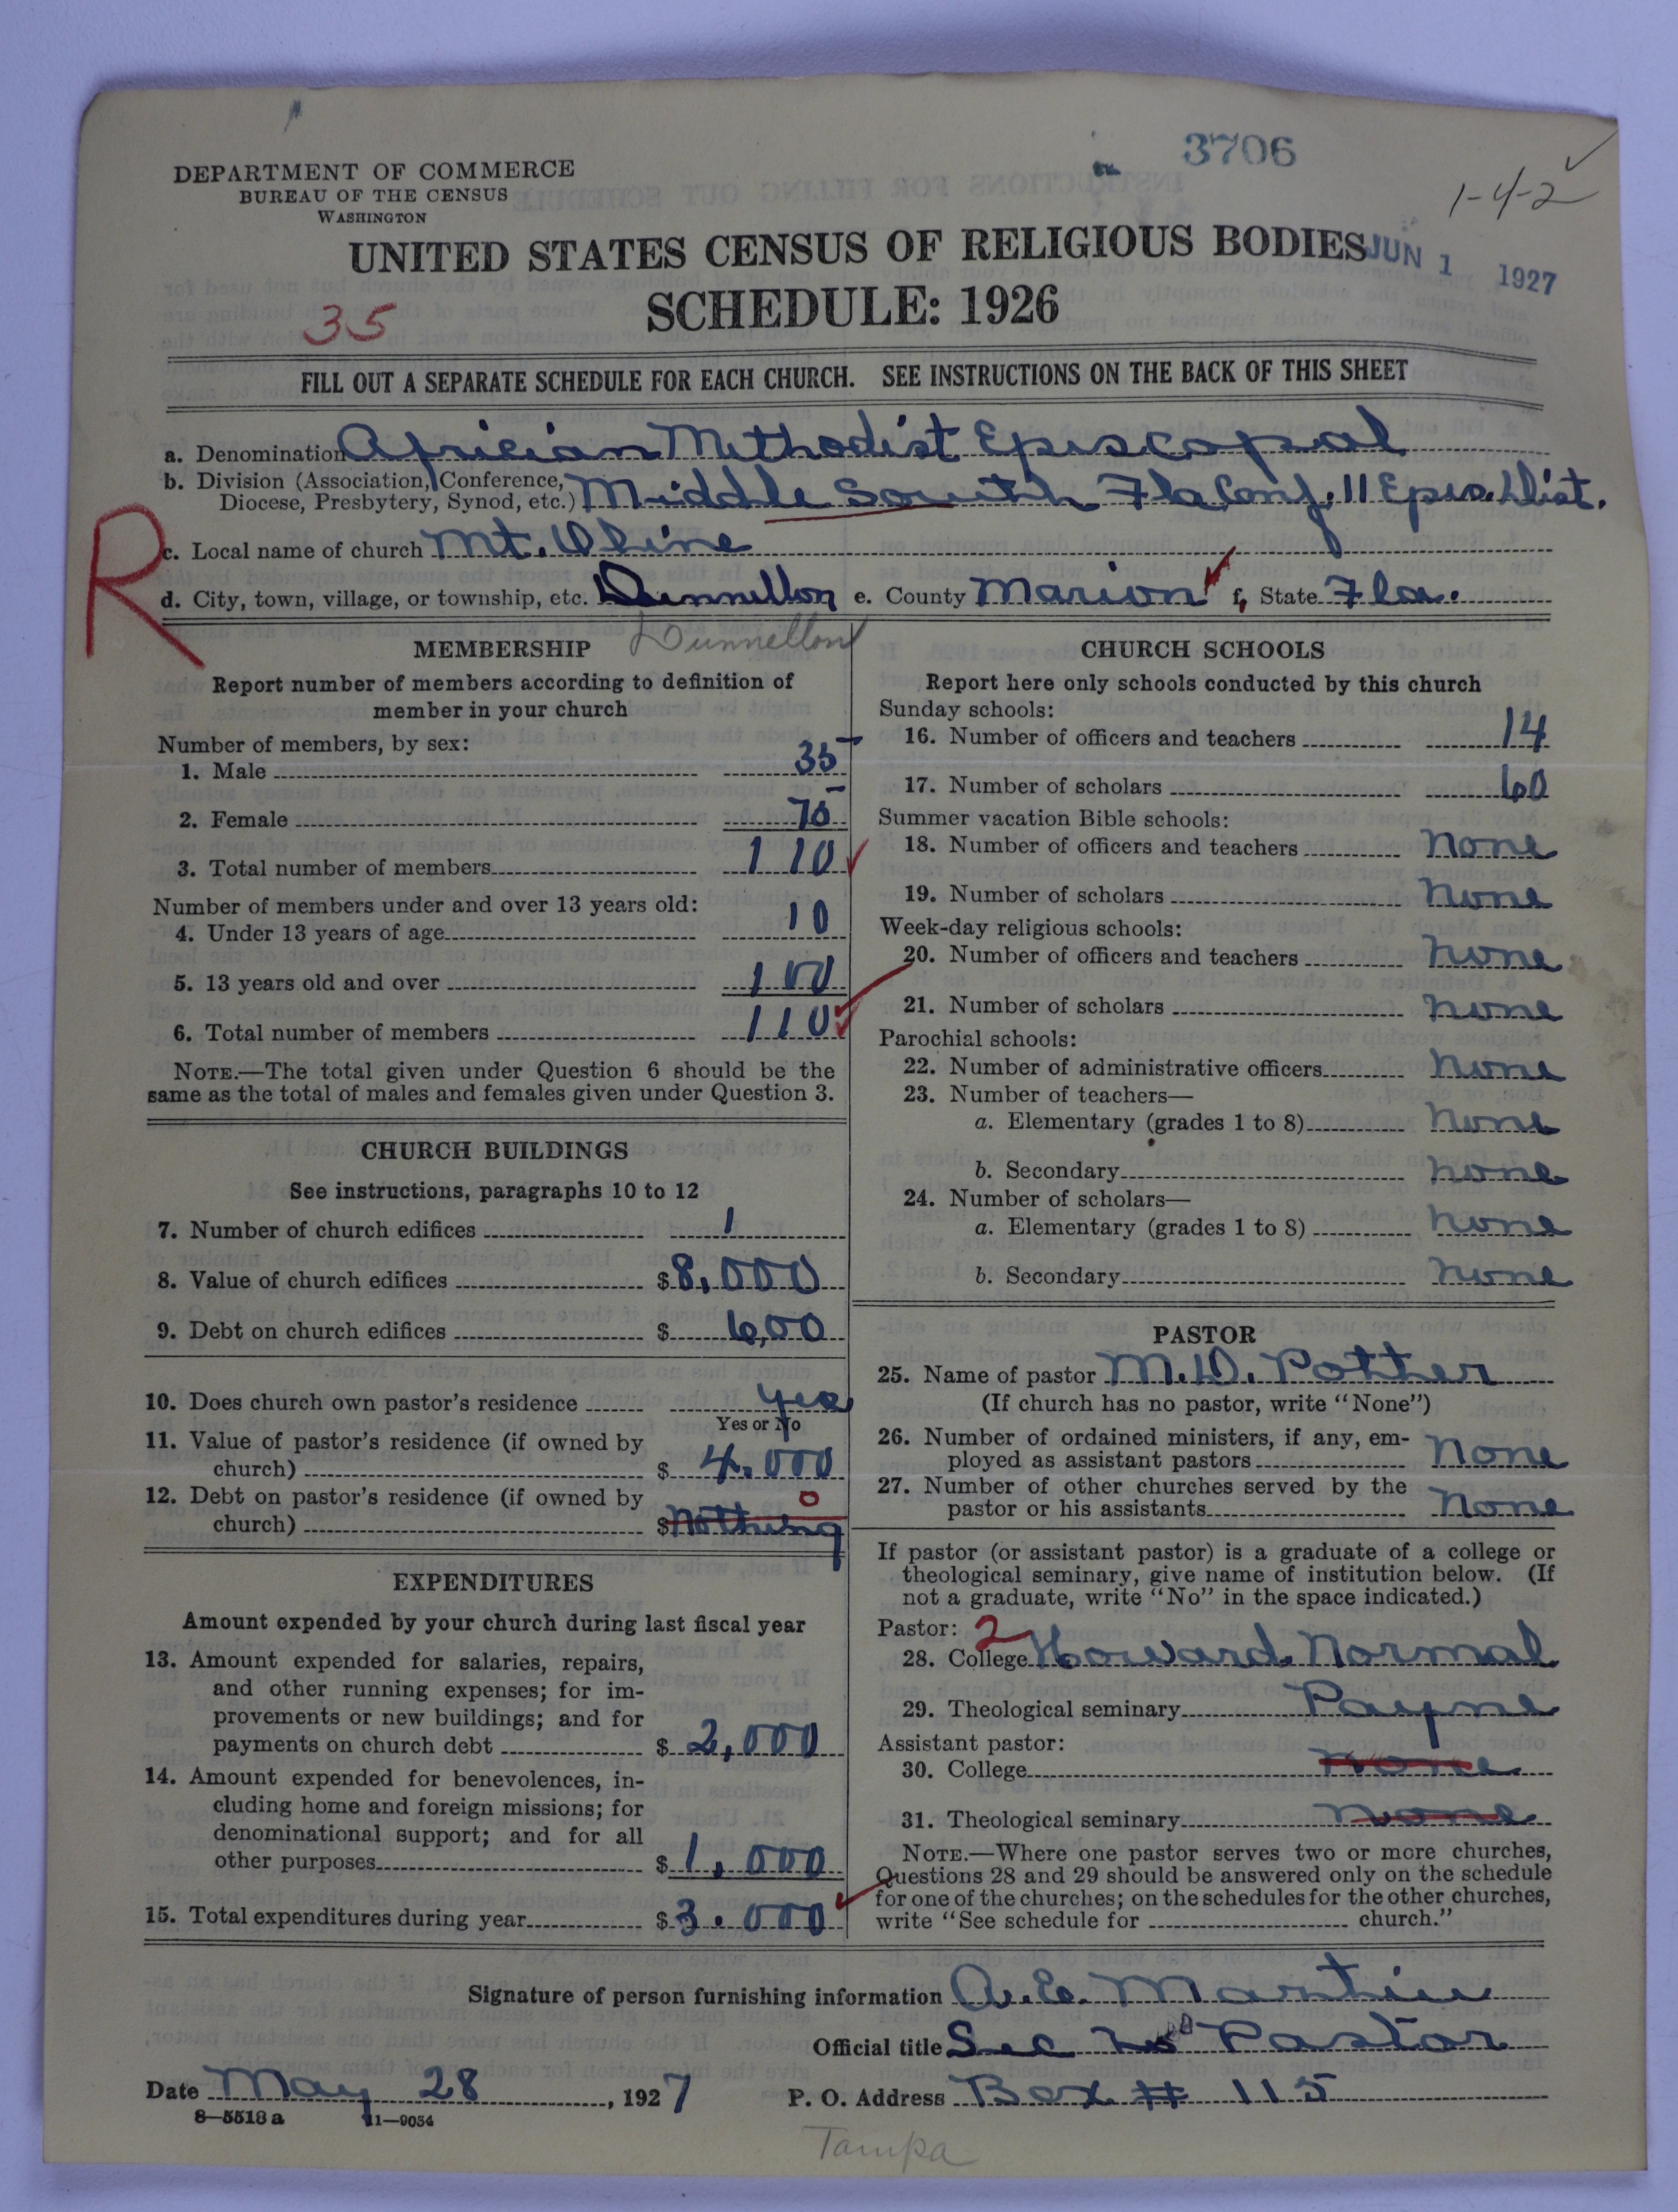 3706
1-4-2
DEPARTMENT OF COMMERCE
BUREAU OF THE CENSUS
WASHINGTON
UNITED STATES CENSUS OF RELIGIOUS BODIES
JUN 1 1927
SCHEDULE: 1926
35
FILL OUT A SEPARATE SCHEDULE FOR EACH CHURCH. SEE INSTRUCTIONS ON THE BACK OF THIS SHEET
a. Denomination Africian Methodist Episcopal
b. Division (Association, Conference,
Diocese, Presbytery, Synod, etc.) Middle South Fla Conf. 11 Epis. Dist.
R
c. Local name of church Mt. Oline
d. City, town, village, or township, etc. Dunnellon e. County Marion f. State Fla.
Dunnellon
MEMBERSHIP
Report number of members according to definition of
member in your church
Number of members, by sex:
1. Male 35
2. Female 75
3. Total number of members 110
Number of members under and over 13 years old:
4. Under 13 years of age 10
5. 13 years old and over 100
6. Total number of members 110
NOTE.—The total given under Question 6 should be the
same as the total of males and females given under Question 3.
CHURCH BUILDINGS
See instructions, paragraphs 10 to 12
7. Number of church edifices 1
8. Value of church edifices $ 8,000
9. Debt on church edifices $ 6,00
10. Does church own pastor's residence yes
Yes or No
11. Value of pastor's residence (if owned by
church) $ 4.000
12. Debt on pastor's residence (if owned by
church) $ nothing 0
EXPENDITURES
Amount expended by your church during last fiscal year
13. Amount expended for salaries, repairs,
and other running expenses; for im-
provements or new buildings; and for
payments on church debt $ 2,000
14. Amount expended for benevolences, in-
cluding home and foreign missions; for
denominational support; and for all
other purposes $ 1,000
15. Total expenditures during year $ 3.000
CHURCH SCHOOLS
Report here only schools conducted by this church
Sunday schools:
16. Number of officers and teachers 14
17. Number of scholars 60
Summer vacation Bible schools:
18. Number of officers and teachers none
19. Number of scholars none
Week-day religious schools:
20. Number of officers and teachers none
21. Number of scholars none
Parochial schools:
22. Number of administrative officers none
23. Number of teachers—
a. Elementary (grades 1 to 8) none
b. Secondary none
24. Number of scholars—
a. Elementary (grades 1 to 8) none
b. Secondary none
PASTOR
25. Name of pastor M.D. Potther
(If church has no pastor, write "None")
26. Number of ordained ministers, if any, em-
ployed as assistant pastors none
27. Number of other churches served by the
pastor or his assistants none
If pastor (or assistant pastor) is a graduate of a college or
theological seminary, give name of institution below. (If
not a graduate, write "No" in the space indicated.)
Pastor: 2
28. College Howard Normal
29. Theological seminary Payne
Assistant pastor:
30. College none
31. Theological seminary none
NOTE.—Where one pastor serves two or more churches,
Questions 28 and 29 should be answered only on the schedule
for one of the churches; on the schedules for the other churches,
write "See schedule for church."
Signature of person furnishing information A.E. Martin
Official title Sec to Pastor
Date May 28, 1927 P. O. Address Box # 115
8—5518 a 11—9034
Tampa